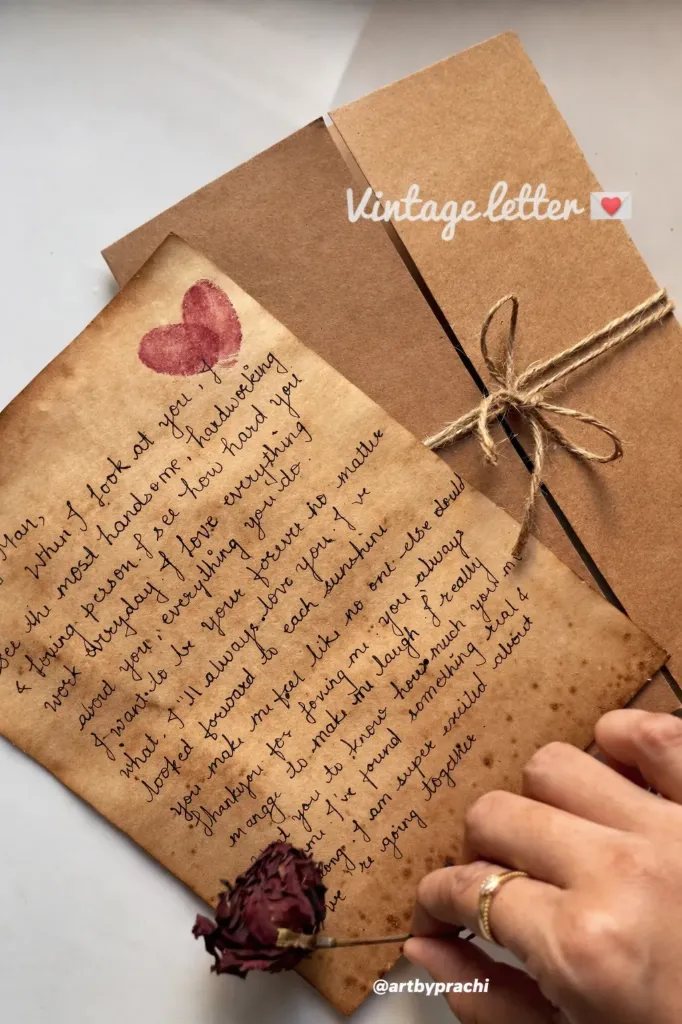 Vintage letter 💌
Man,
When I look at you, I
see the most handsome, hardworking
& loving person. I see how hard you
work everyday. I love everything
about you, everything you do.
I want to be your forever no matter
what. I'll always love you. I've
looked forward to each sunshine
you make me feel like no one else could
Thankyou for loving me you always
manage to make me laugh. I really
you to know how much you
I've found something real &
long. I am super excited about
we're going together
@artbyprachi